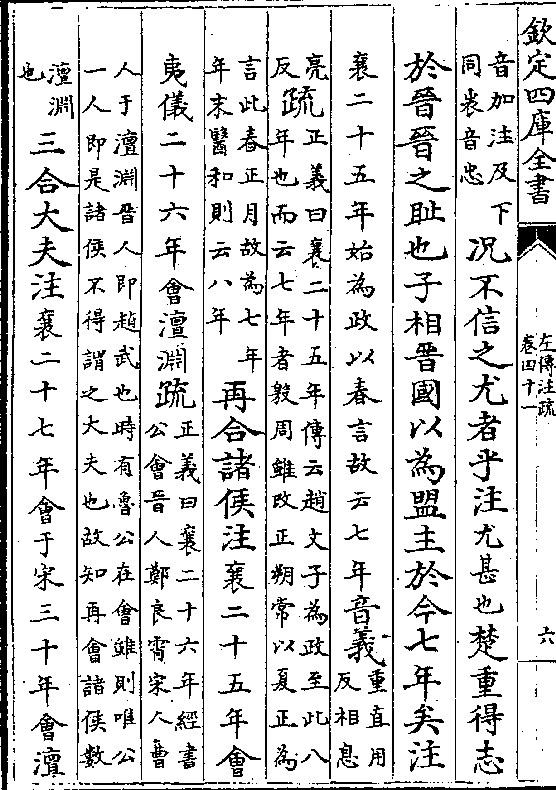 欽定四庫全書
左傳注疏
卷四十一
六
音加注及下
同裳音忠
況不信之尤者乎注尤甚也楚重得志
於晉晉之耻也子相晉國以為盟主於今七年矣注
襄二十五年始為政以春言故云七年音義
重直用
反相息
亮
反
疏
正義曰襄二十五年傳云趙文子為政至此八
年也而云七年者殷周雖改正朔常以夏正為
言此春正月故為七年
年末醫和則云八年
再合諸侯注襄二十五年會
夷儀二十六年會澶淵疏
正義曰襄二十六年經書
公會晉人鄭良霄宋人曹
人于澶淵晉人即趙武也時有魯公在會雖則唯公
一人即是諸侯不得謂之大夫也故知再會諸侯數
澶淵
也
三合大夫注襄二十七年會于宋三十年會澶